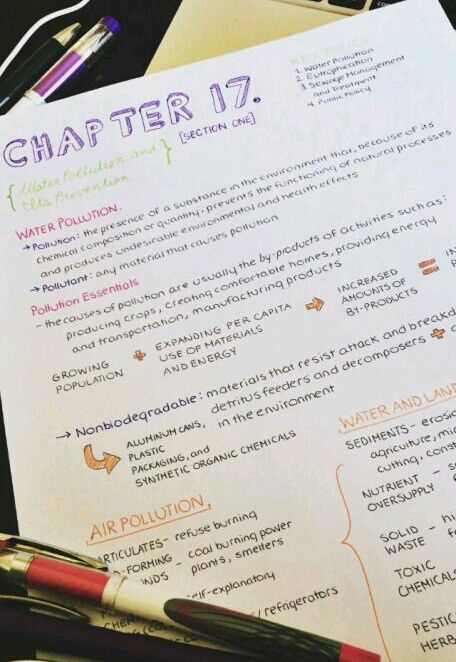 CHAPTER 17.
[SECTION ONE]
1. Water Pollution
2. Eutrophication
3. Sewage Management
and Treatment
4. Public Policy
{Water Pollution and
Its Prevention}
WATER POLLUTION.
→ Pollution: the presence of a substance in the environment that, because of its
chemical composition or quantity, prevents the functioning of natural processes
and produces undesirable environmental and health effects
→ Pollutant: any material that causes pollution
Pollution Essentials
- the causes of pollution are usually the by-products of activities such as:
producing crops, creating comfortable homes, providing energy
and transportation, manufacturing products
GROWING
POPULATION
+
EXPANDING PER CAPITA
USE OF MATERIALS
AND ENERGY
→
INCREASED
AMOUNTS OF
BY-PRODUCTS
=
→ Nonbiodegradable: materials that resist attack and breakd
detritus feeders and decomposers +
in the environment
ALUMINUM CANS,
PLASTIC
PACKAGING, and
SYNTHETIC ORGANIC CHEMICALS
AIR POLLUTION.
ARTICULATES - refuse burning
D-FORMING - coal burning power
NDS plants, smelters
elf-explanatory
/ refrigerators
WATER AND LAND
SEDIMENTS - erosi
agriculture, mi
cutting, const
NUTRIENT - s
OVERSUPPLY
SOLID - hi
WASTE
TOXIC
CHEMICALS
PESTIC
HERB